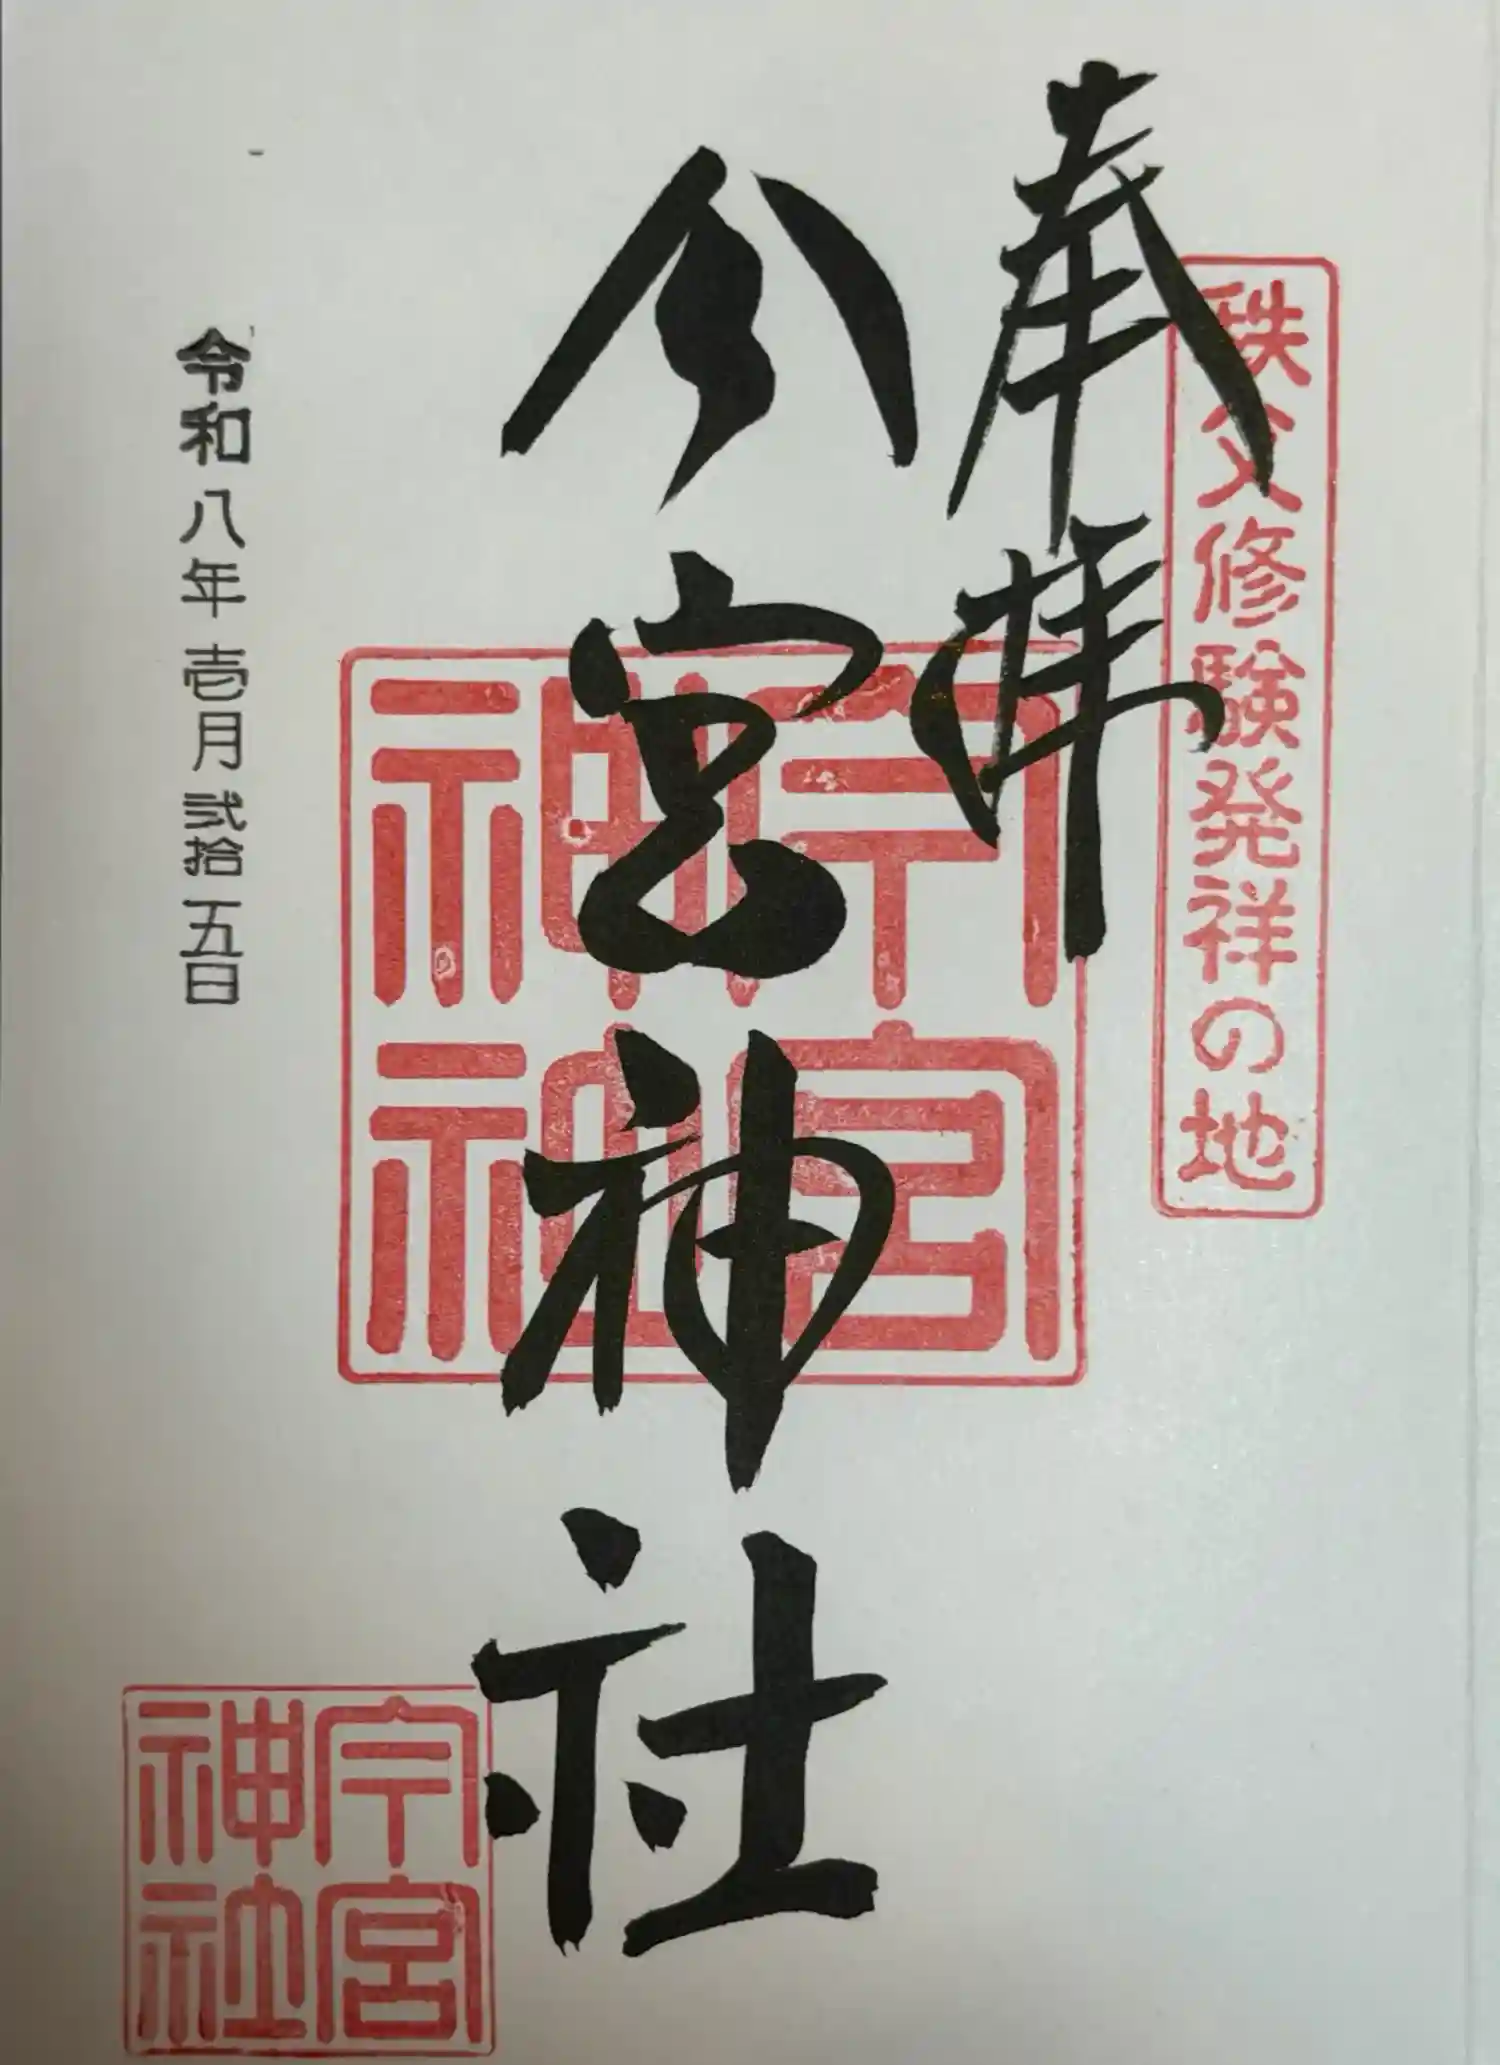 秩父修験発祥の地
奉拝
今宮神社
今宮
神社
令和八年壱月弐拾五日
今宮
神社